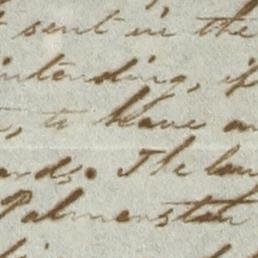 sent in the
intending, if
to have an
ards. The law
Palmerston